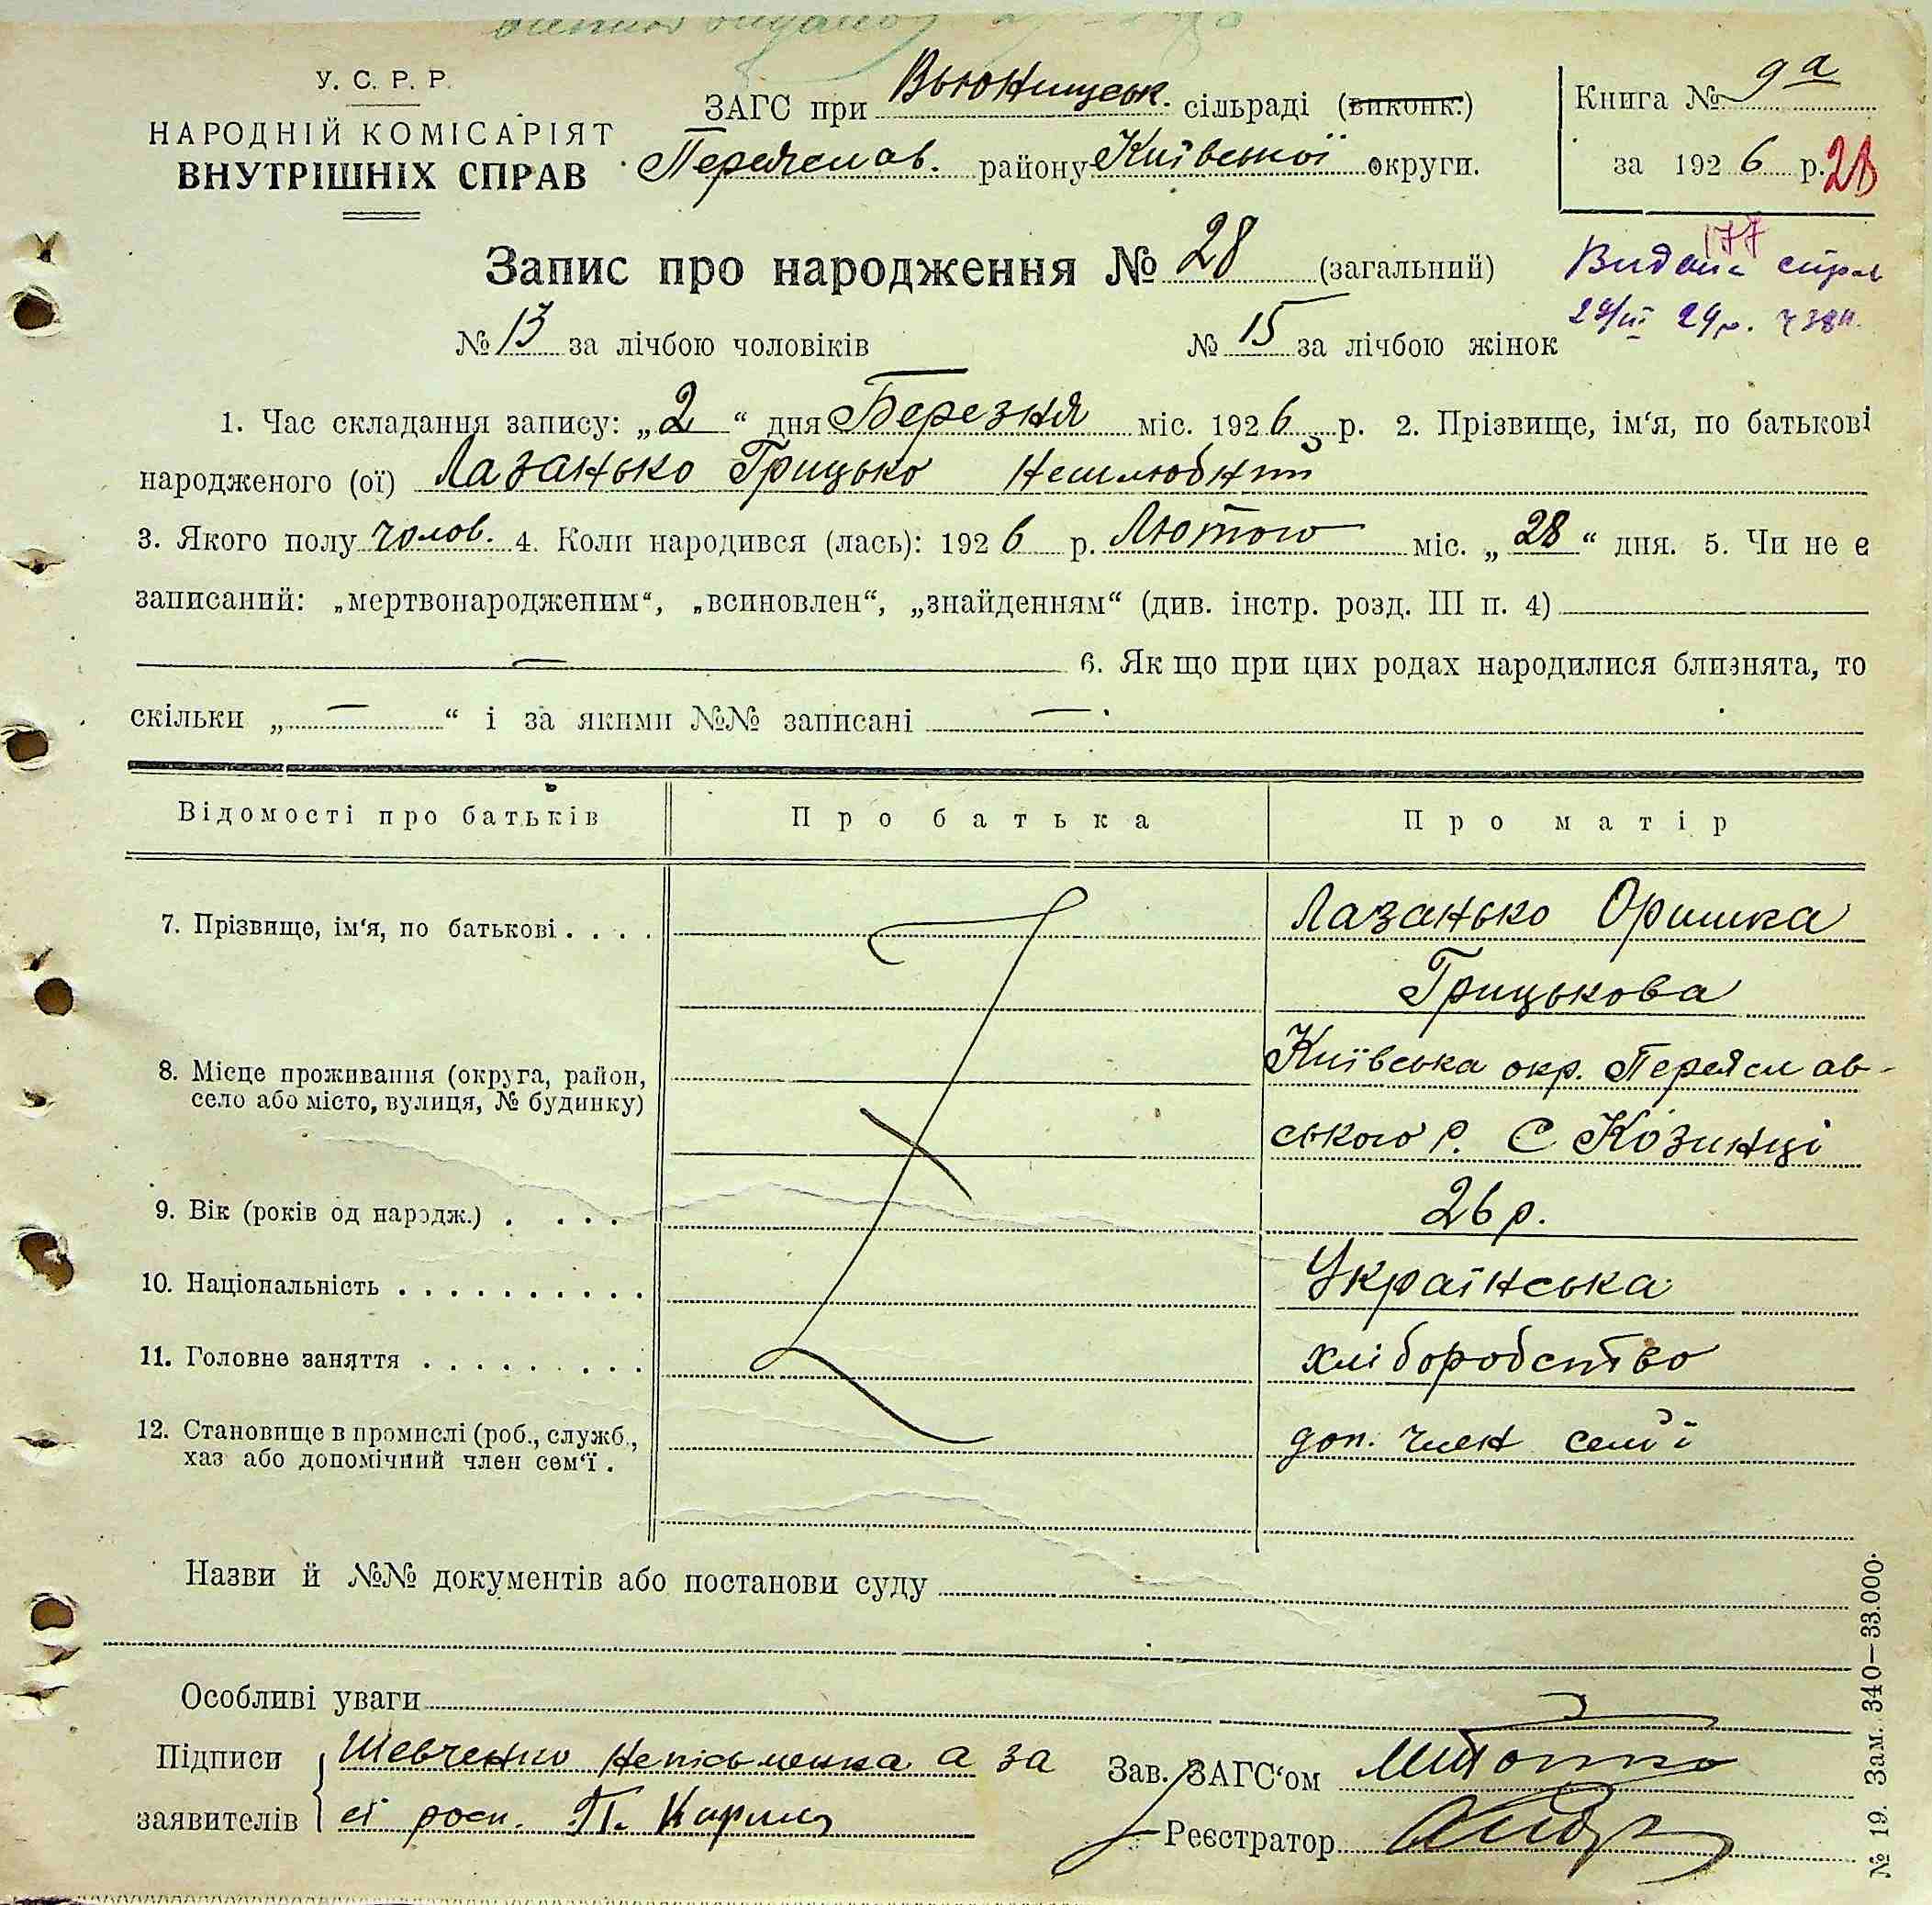 У. С. Р. Р.
НАРОДНІЙ КОМІСАРІЯТ
ВНУТРІШНІХ СПРАВ
ЗАГС при Вьюнищськ. сільраді (виконк.)
Переяслав. району Київської округи.
Книга № 9а
за 1926 р. 28
Запис про народження № 28 (загальний)
177
Видана
№ 13 за лічбою чоловіків № 15 за лічбою жінок
1. Час складання запису: „2“ дня Березня міс. 1926 р. 2. Прізвище, ім‘я, по батькові
народженого (ої) Лазанько Грицько нешлюбний
3. Якого полу чолов. 4. Коли народився (лась): 1926 р. Лютого міс. „28“ дня. 5. Чи не є
записаний: „мертвонародженим“, „всиновлен“, „знайденням“ (див. інстр. розд. III п. 4)
— 6. Як що при цих родах народилися близнята, то
скільки „—“ і за якими №№ записані —
Відомості про батьків Про батька Про матір
7. Прізвище, ім‘я, по батькові . . . . Лазанько Оришка
Грицькова
8. Місце проживання (округа, район, Київська окр. Переяслав-
село або місто, вулиця, № будинку) ського р. С Козинці
9. Вік (років од народж.) . . . . 26 р.
10. Національність . . . . . . . . . . Українська
11. Головне заняття . . . . . . . . . хліборобство
12. Становище в промислі (роб., служб., доп. член семї
хаз або допомічний член сем‘ї .
Назви й №№ документів або постанови суду
Особливі уваги
Підписи Шевченко неписьменна а за
заявителів еї росп. П.
Зав. ЗАГС‘ом
Реєстратор
№ 19. Зам. 340—33.000.